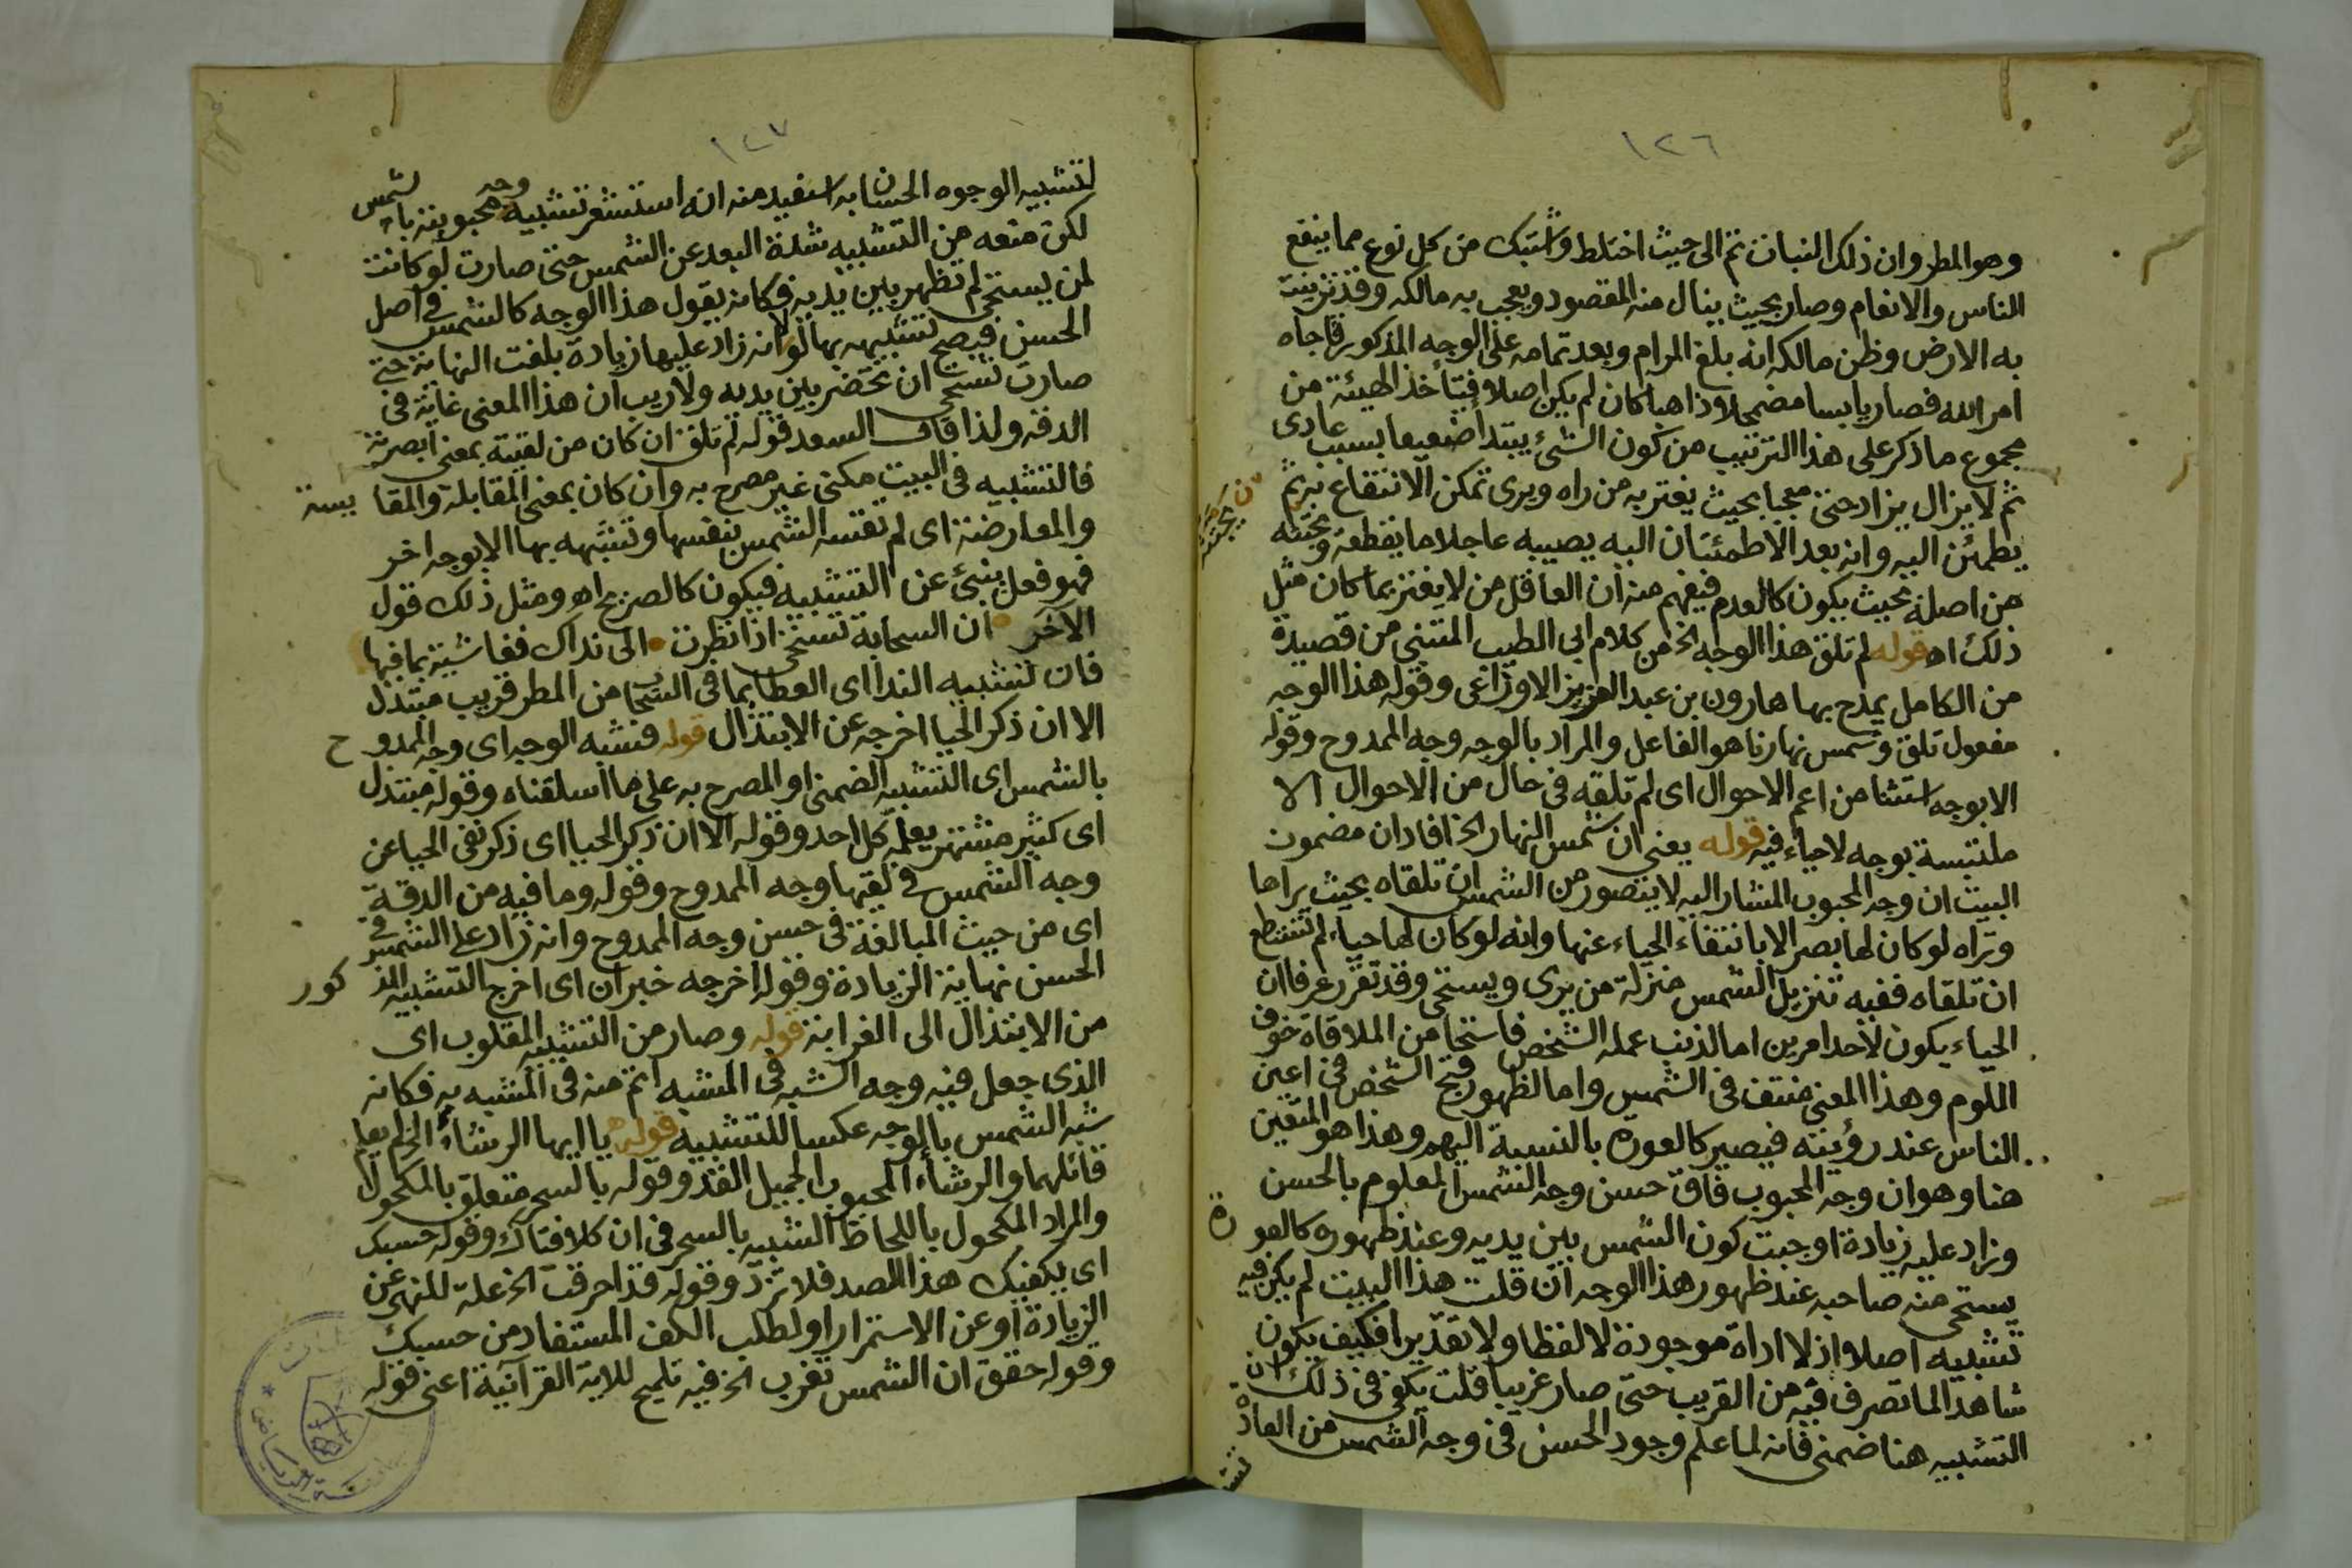 ١٢٦
وهو المطر وان ذلك النبات نم الى حيث اختلط واشتبك من كل نوع مما ينتفع
الناس والانعام وصار بحيث ينال منه المقصود ويعجب به مالكه وقد تزينت
به الارض وظن مالكه انه بلغ المرام وبعد تمامه على الوجه المذكور فاجاه
امر الله فصار يابسا مضمحلا وذاهبا كان لم يكن اصلا فيتأخذ الهيئة من
مجموع ما ذكر على هذا الترتيب من كون الشئ يبتدأ ضعيفا بسبب عادى
ثم لا يزال يزاد حتى معجبا بحيث يغتر به من راه ويرى تمكن الانتفاع به ثم
يطمئن اليه وانه بعد الاطمئنان اليه يصيبه عاجلا ما يقطعه ويجتثه
من اصله بحيث يكون كالعدم فيفهم منه ان العاقل من لا يغتر بما كان مثل
ذلك اه قوله لم تلق هذا الوجه الخ من كلام ابى الطيب المتنبى من قصيدة
من الكامل يمدح بها هارون بن عبد العزيز الاوزاعى وقوله هذا الوجه
مفعول تلق وشمس نهارنا هو الفاعل والمراد بالوجه وجه الممدوح وقوله
الا بوجه استثنا من اعم الاحوال اى لم تلقه فى حال من الاحوال الا
ملتبسة بوجه لا حياء فيه قوله يعنى ان شمس النهار الخ افاد ان مضمون
البيت ان وجه المحبوب المشار اليه لا يتصور من الشمس ان تلقاه بحيث يراها
وتراه لو كان لها بصر الا بانتفاء الحياء عنها وانه لو كان لها حياء لم تستطع
ان تلقاه ففيه تنزيل الشمس منزلة من يرى ويستحى وقد تقرر عرفا ان
الحياء يكون لاحد امرين اما لذنب عمله الشخص فاستحا من الملاقاة خوف
اللوم وهذا المعنى منتف فى الشمس واما لظهور قبح الشخص فى اعين
الناس عند رؤيته فيصير كالعورة بالنسبة اليهم وهذا هو المتعين
هنا وهو ان وجه المحبوب فاق حسن وجه الشمس المعلوم بالحسن
وزاد عليه زيادة اوجبت كون الشمس بين يديه وعند ظهوره كالعورة
يستحى منه صاحبه عند ظهور هذا الوجه ان قلت هذا البيت لم يكن فيه
تشبيه اصلا اذ لا اداة موجودة لا لفظا ولا تقديرا فكيف يكون
شاهدا لما تصرف فيه من القريب حتى صار غريبا قلت يكفى فى ذلك ان
التشبيه هنا ضمنى فانه لما علم وجود الحسن فى وجه الشمس من العادة
١٢٧
لتشبيه الوجوه الحسان به استفيد منه انه استشعر تشبيه وجه محبوبته بالشمس
لكن منعه من التشبيه شدة البعد عن الشمس حتى صارت لو كانت
لمن يستحى لم تظهر بين يديه فكانه يقول هذا الوجه كالشمس فى اصل
الحسن فيصح تشبيهه بها لولا انه زاد عليها زيادة بلغت النهاية حتى
صارت تستحى ان تحضر بين يديه ولا ريب ان هذا المعنى غاية فى
الدقه ولذا قال السعد قوله لم تلق ان كان من لقيته بمعنى ابصرته
فالتشبيه فى البيت مكنى غير مصرح به وان كان بمعنى المقابلة والمقايسة
والمعارضة اى لم تقسه الشمس بنفسها وتشبهه بها الا بوجه اخر
فهو فعل ينبئ عن التشبيه فيكون كالصريح اه ومثل ذلك قول
الآخر ان السحابة تستحى اذا نظرت الى نداك فقاسته بما فيها
فان تشبيه الندا اى العطا بما فى السحاب من المطر قريب مبتذل
الا ان ذكر الحيا اخرجه عن الابتذال قوله فتشبه الوجه اى وجه الممدوح
بالشمس اى التشبيه الضمنى او المصرح به على ما اسلفناه وقوله مبتذل
اى كثير مشتهر يعلمه كل احد وقوله الا ان ذكر الحيا اى ذكر نفى الحيا عن
وجه الشمس فى لقيها وجه الممدوح وقوله وما فيه من الدقة
اى من حيث المبالغة فى حسن وجه الممدوح وانه زاد على الشمس فى
الحسن نهاية الزيادة وقوله اخرجه خبر ان اى اخرج التشبيه المذكور
من الابتذال الى الغرابة قوله وصار من التشبيه المقلوب اى
الذى جعل فيه وجه الشبه فى المشبه اتم منه فى المشبه به فكانه
شبه الشمس بالوجه عكسا للتشبيه قوله يا ايها الرشاء الخ لم يعلم
قائلهما والرشاء المحبوب الجميل القد وقوله بالسحر متعلق بالمكحول
والمراد المكحول باللحاظ الشبيه بالسحر فى ان كلا فتاك وقوله حسبك
اى يكفيك هذا الصد فلا تزد وقوله قد احرقت الخ علة للنهى عن
الزيادة او عن الاستمرار او لطلب الكف المستفاد من حسبك
وقوله حقق ان الشمس تغرب الخ فيه تلميح للاية القرآنية اعنى قوله